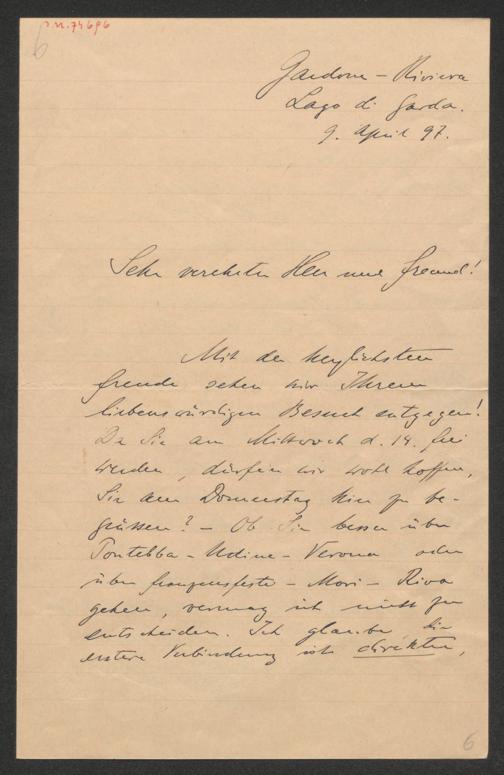 I.N. 74696
6
Gardone - Riviera
Lago di Garda.
9. April 97.
Sehr verehrter Herr und Freund!
Mit der herzlichsten
Freude sehen wir Ihrem
liebenswürdigen Besuch entgegen!
Da Sie am Mittwoch d. 14. frei
werden, dürfen wir wohl hoffen,
Sie am Donnerstag hier zu be-
grüssen? - Ob Sie besser über
Pontebba - Udine - Verona oder
über Franzensfeste - Mori - Riva
gehen, vermag ich nicht zu
entscheiden. Ich glaube die
erstere Verbindung ist direkter,
6